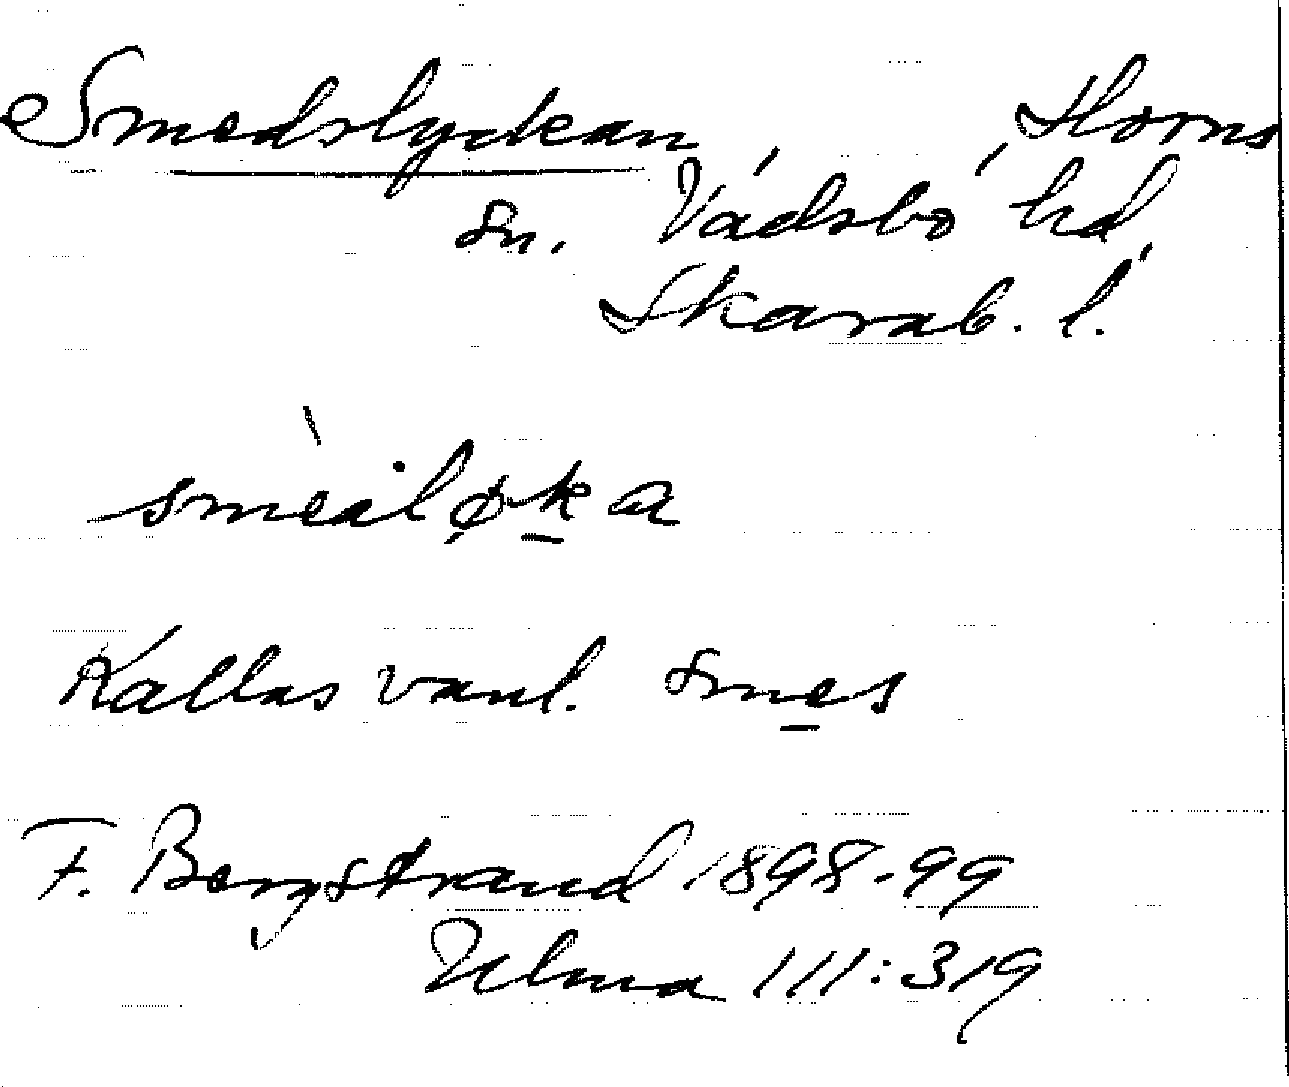 Smedslyckan, Horns
sn. Vadsbo hd,
Skarab. l.
Kallas vanl. smes
F. Bergstrand 1898-99
Ulma 111:319